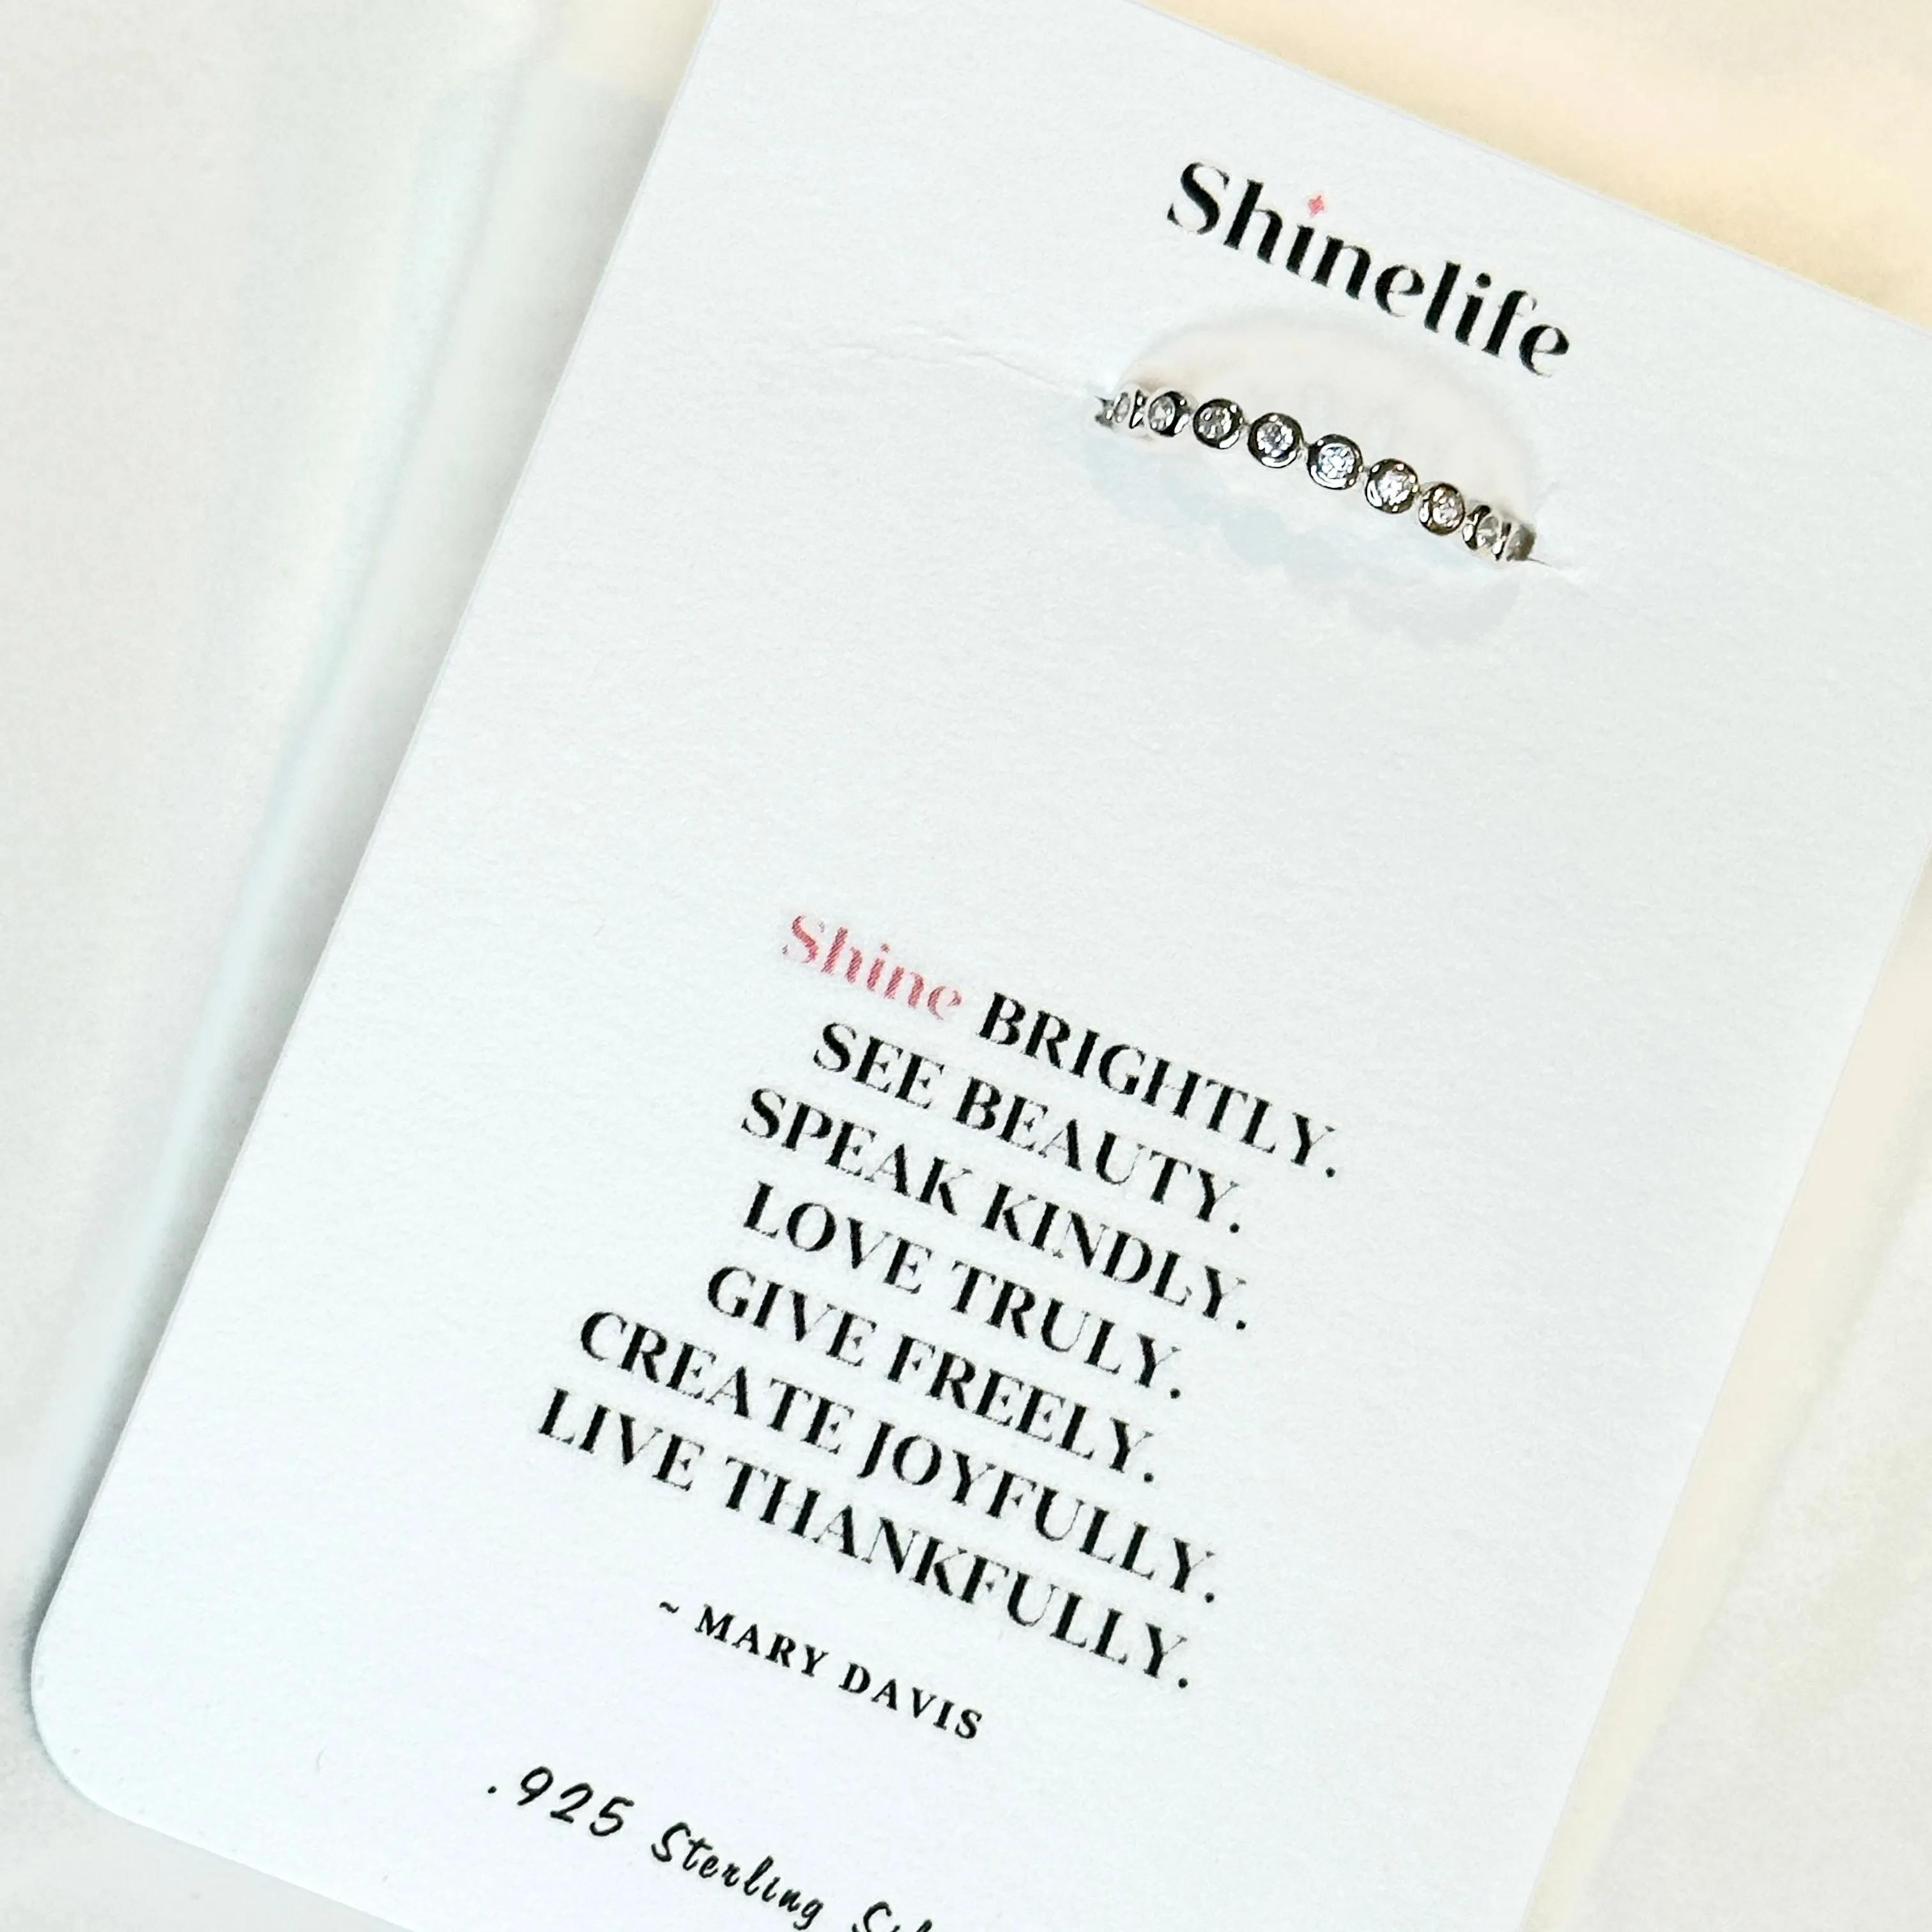 Shinelife
Shine BRIGHTLY.
SEE BEAUTY.
SPEAK KINDLY.
LOVE TRULY.
GIVE FREELY.
CREATE JOYFULLY.
LIVE THANKFULLY.
~ MARY DAVIS
.925 Sterling